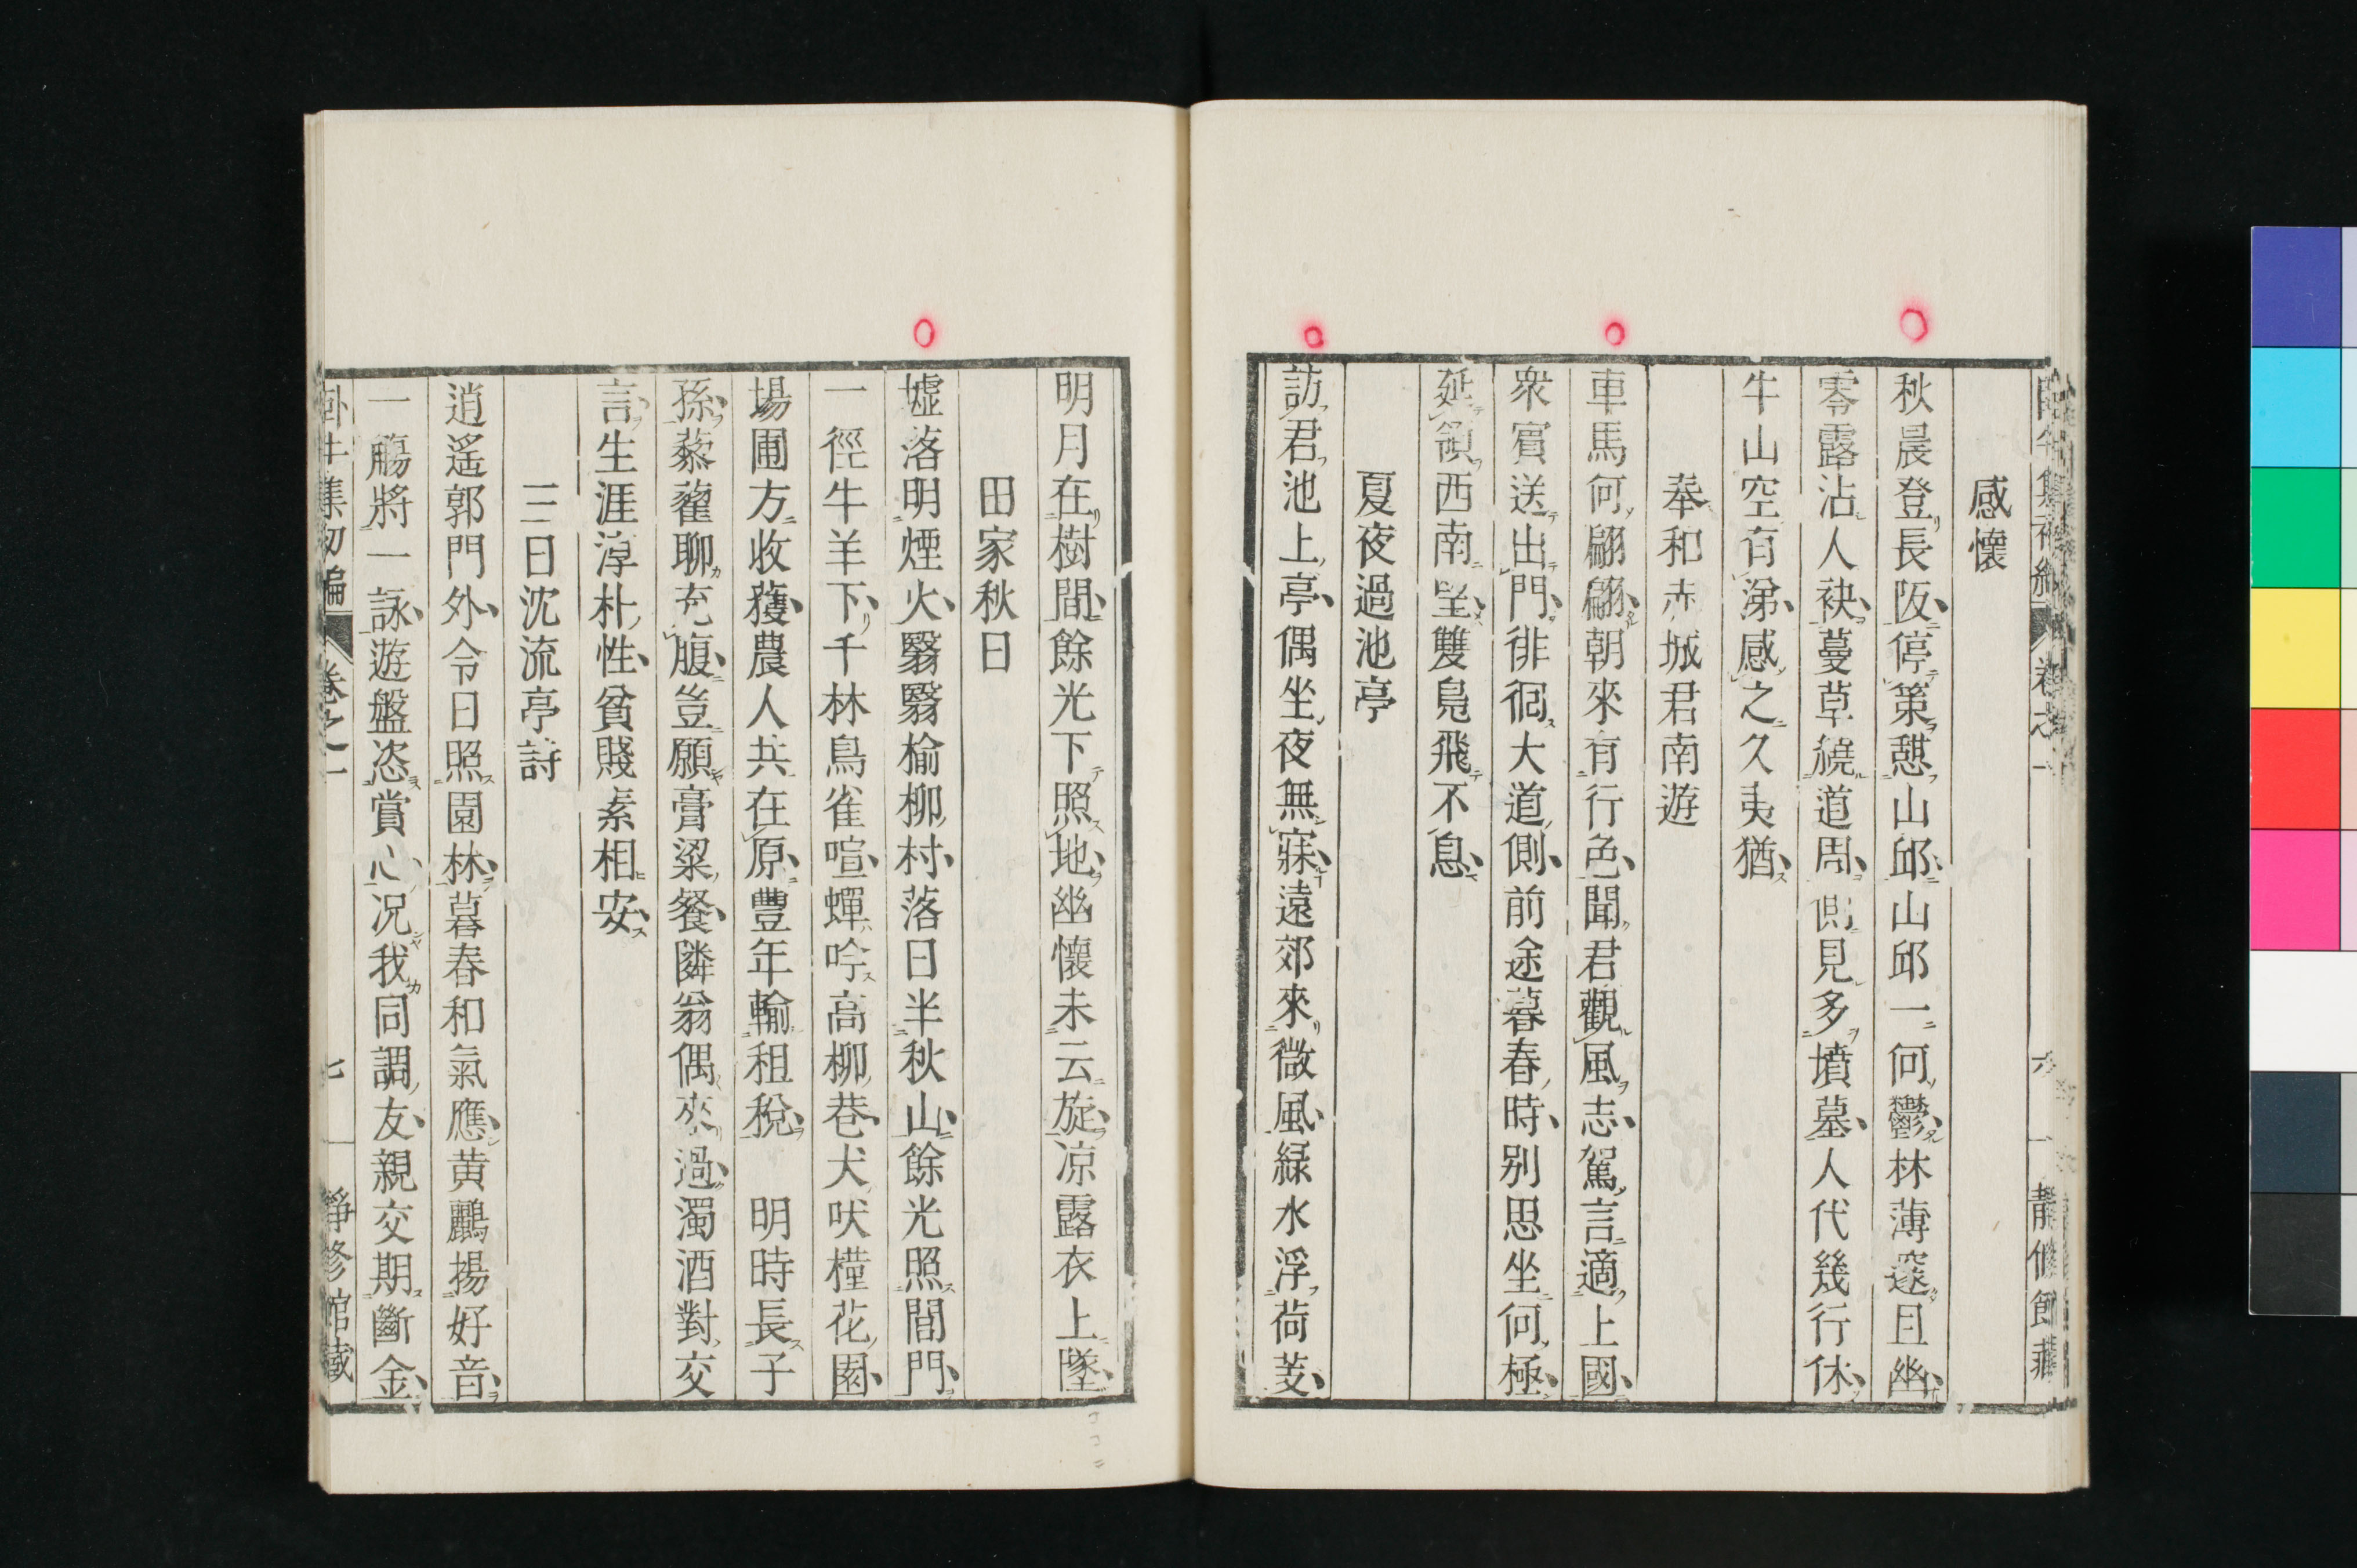 感懷
秋晨登長阪停策憇山邱山邱一何鬱林薄邃且幽
零露沾人袂蔓草繞道周側見多墳墓人代幾行休
牛山空有涕感之久夷猶
奉和赤城君南遊
車馬何翩翩朝來有行色聞君觀風志駕言適上國
衆賓送出門徘徊大道側前途暮春時別思坐何極
延領西南望雙鳧飛不息
夏夜過池亭
訪君池上亭偶坐夜無寐遠郊來微風緑水浮荷芰
明月在樹間餘光下照地幽懷未云旋凉露衣上墜
田家秋日
墟落明煙火翳翳楡柳村落日半秋山餘光照閭門
一徑牛羊下千林鳥雀喧蟬吟高柳巷犬吠槿花園
場圃方收穫農人共在原豐年輸租稅 明時長子
孫藜藿聊充腹豈願膏粱餐隣翁偶來過濁酒對交
言生涯淳朴性貧賤素相安
三日沈流亭詩
逍遙郭門外令日照園林暮春和氣應黄鸝揚好音
一觴將一詠遊盤恣賞心况我同調友親交期斷金
卧牛集初編 卷之一 七 靜修館藏